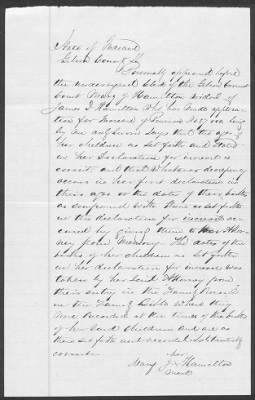 State of Indiana
Gibson County Ss
Personally appeared before
the undersigned Clerk of the Gibson Circuit
Court Mary J Hamilton widow of
James Hamilton who has made applica-
tion for Increase of Pension No who being
by me duly sworn Says that the ages of
her children as set forth and stated
in her Declaration for increase is
correct and that whatever discrepancy
occurs in her first declaration in
their ages or the dates of their births
as compared with those as set forth
in this declaration for increase oc-
cured by giving them to her Attor-
ney from Memory. The dates of the
births of her children as set forth
in her declaration for increase was
taken by her said Attorney from
their entry in the Family Record
in the Family Bible where they
were Recorded at the times of the births
of her said children and are as
then set forth and recorded substantially
correct
her
Mary J x Hamilton
mark